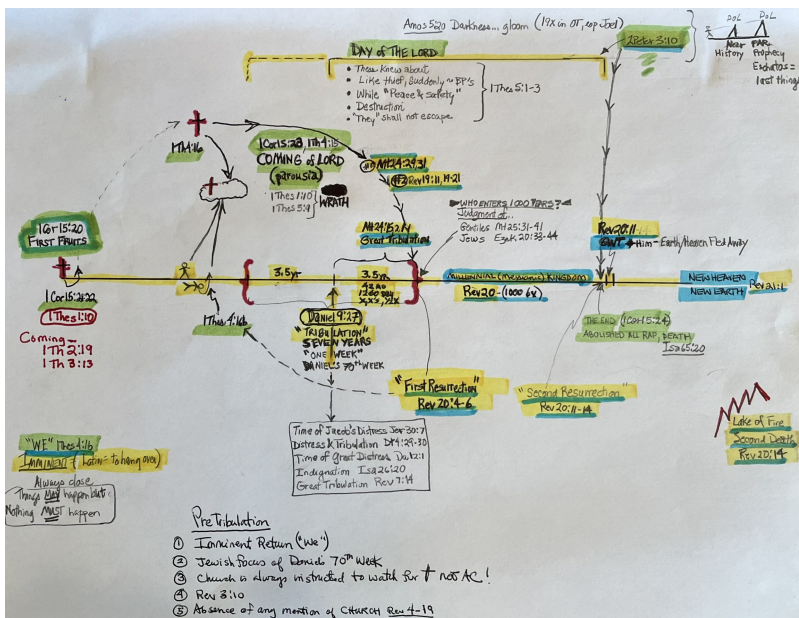 Amos 5:20 Darkness... gloom (19x in OT, esp Joel)
2 Peter 3:10
DOL
DOL
Near
FAR
History
Prophecy
Eschatos =
last things
DAY OF THE LORD
• Thess Knew about
• Like thief, Suddenly ~ BP's
• While "Peace & safety"
• Destruction
• "They" shall not escape
1 Thes 5:1-3
1 Th 4:16
1 Cor 15:23, 1 Th 4:15
COMING of LORD
(parousia)
1 Thes 1:10
1 Thes 5:9
WRATH
Mt 24:29,31
#2 Rev 19:11, 19-21
WHO ENTERS 1000 YEARS?
Judgment of...
Gentiles Mt 25:31-41
Jews Ezek 20:33-44
Great Tribulation
1 Cor 15:20
FIRST FRUITS
Rev 20:11
GWT Him - Earth/Heaven Fled Away
3.5 yr
3.5 yr
42 mo
1260 day
MILLENNIAL KINGDOM
Rev 20 - (1000 6x)
NEW HEAVEN
NEW EARTH
Rev 21:1
1 Cor 15:22
1 Thes 1:10
Coming -
1 Th 2:19
1 Th 3:13
1 Thes 4:16
Daniel 9:27
"TRIBULATION"
SEVEN YEARS
"ONE WEEK"
DANIEL'S 70th WEEK
THE END (1 Cor 15:24)
ABOLISHED ALL RAP, DEATH
Isa 65:20
"First Resurrection"
Rev 20:4-6
"Second Resurrection"
Rev 20:11-14
Lake of Fire
Second Death
Rev 20:14
Time of Jacob's Distress Jer 30:7
Distress & Tribulation Dt 4:29-30
Time of Great Distress Da 12:1
Indignation Isa 26:20
Great Tribulation Rev 7:14
"WE" 1 Thes 4:16
IMMINENT (Latin = to hang over)
Always close
Things MAY happen but
Nothing MUST happen
PreTribulation
① Imminent Return ("We")
② Jewish focus of Daniel's 70th Week
③ Church is always instructed to watch for † not AC!
④ Rev 3:10
⑤ Absence of any mention of CHURCH Rev 4-19